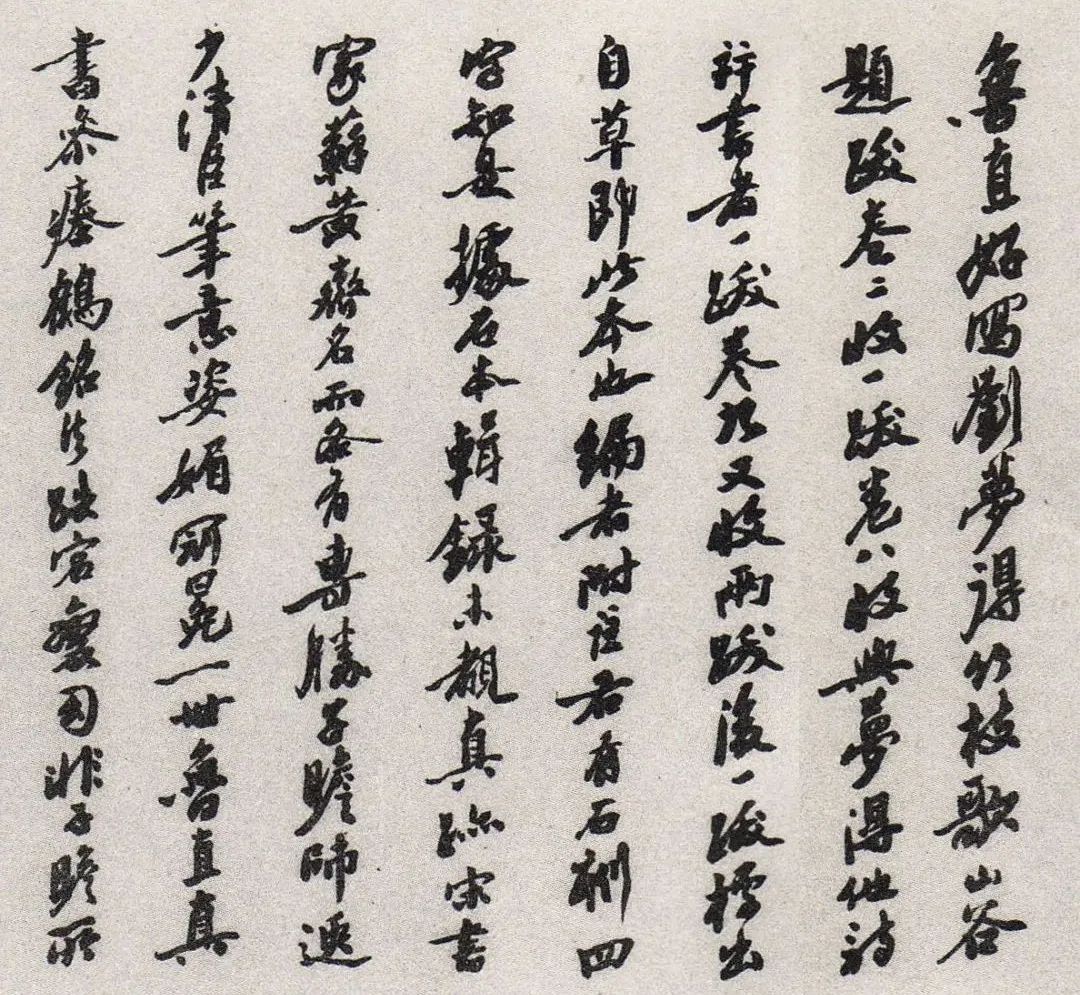 魯直好圖劉夢得竹枝歌山谷
題跋卷二收一跋卷八收與夢得他詩
并書者一跋卷九又收兩跋後一跋標出
自草即此本也編者附注云有石刻四
字知是據石本輯錄未覩真跡宋書
家蘇黃齊名而各有專勝子瞻師逸
少清臣筆意姿媚冠冕一世魯直真
書參瘞鶴銘法跌宕處固非子瞻所